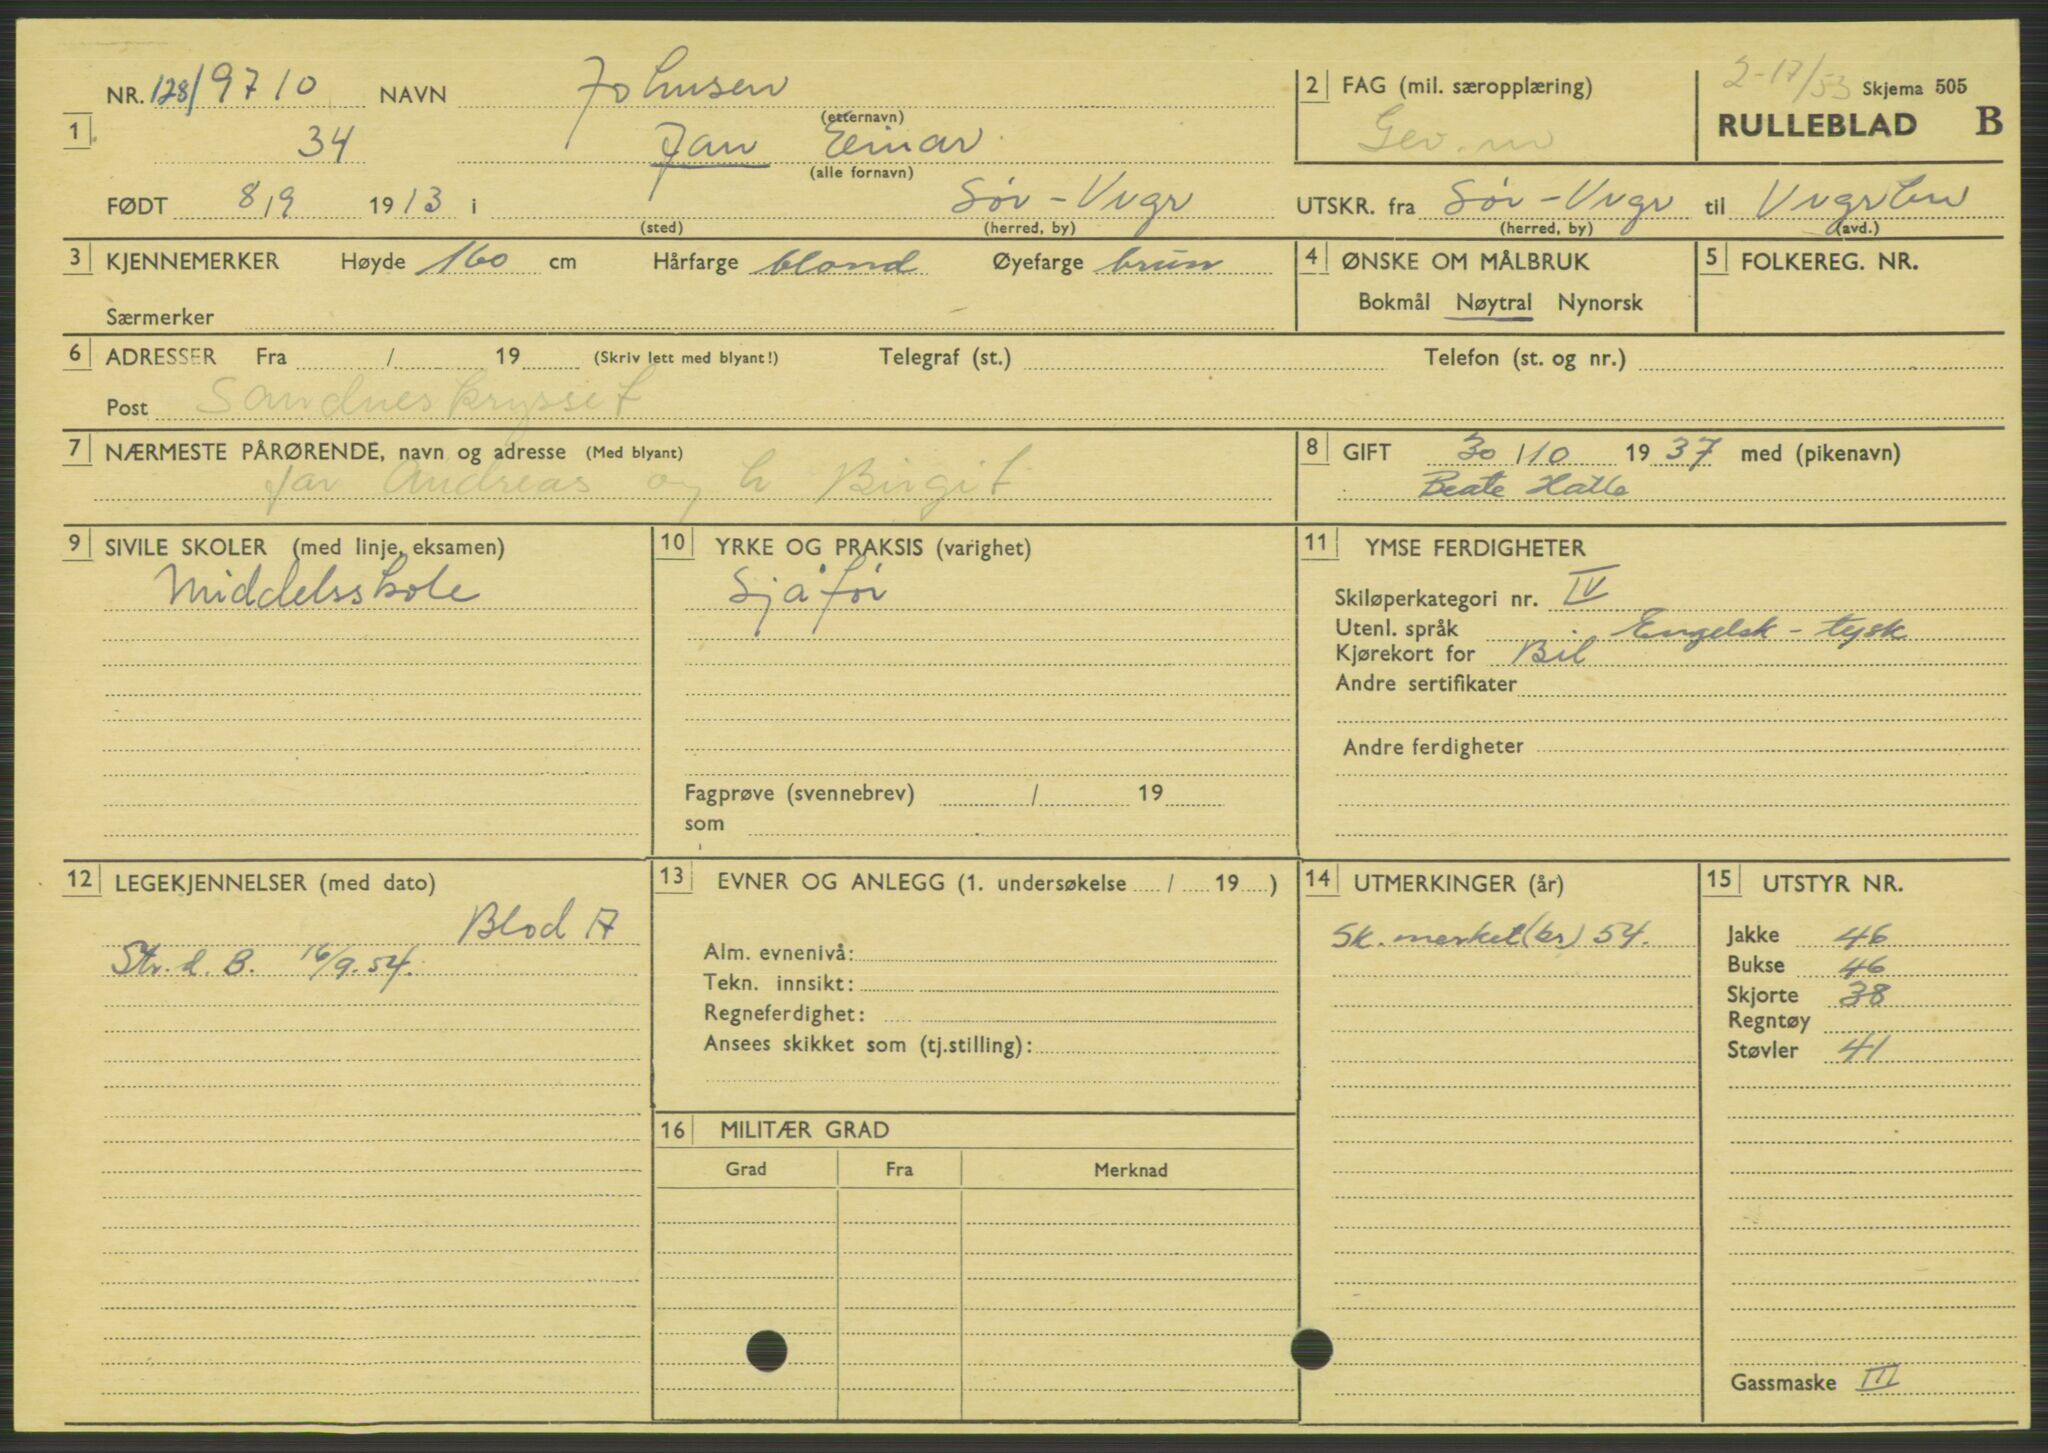 NR. 128/9710 NAVN Johnsen
(etternavn)
2 FAG (mil. særopplæring)
2-17/53 Skjema 505
1 34 Jan Einar
(alle fornavn)
Gev. m
RULLEBLAD B
FØDT 8/9 1913 i Sør-Vvgr
(sted) (herred, by)
UTSKR. fra Sør-Vvgr til
(herred, by) (avd.)
3 KJENNEMERKER Høyde 160 cm Hårfarge blond Øyefarge brun
Særmerker
4 ØNSKE OM MÅLBRUK
Bokmål Nøytral Nynorsk
5 FOLKEREG. NR.
6 ADRESSER Fra / 19 (Skriv lett med blyant!) Telegraf (st.) Telefon (st. og nr.)
Post Sandneskrysset
7 NÆRMESTE PÅRØRENDE, navn og adresse (Med blyant)
far Andreas og h Birgit
8 GIFT 30/10 1937 med (pikenavn)
Beate Halle
9 SIVILE SKOLER (med linje, eksamen)
Middelsskole
10 YRKE OG PRAKSIS (varighet)
Sjåfør
Fagprøve (svennebrev) / 19
som
11 YMSE FERDIGHETER
Skiløperkategori nr. IV
Utenl. språk Engelsk - tysk
Kjørekort for Bil
Andre sertifikater
Andre ferdigheter
12 LEGEKJENNELSER (med dato)
Blod A
Str. d. B. 16/9.54.
13 EVNER OG ANLEGG (1. undersøkelse / 19 )
Alm. evnenivå:
Tekn. innsikt:
Regneferdighet:
Ansees skikket som (tj.stilling):
14 UTMERKINGER (år)
Sk. merket (br) 54.
15 UTSTYR NR.
Jakke 46
Bukse 46
Skjorte 38
Regntøy
Støvler 41
16 MILITÆR GRAD
Grad Fra Merknad
Gassmaske III